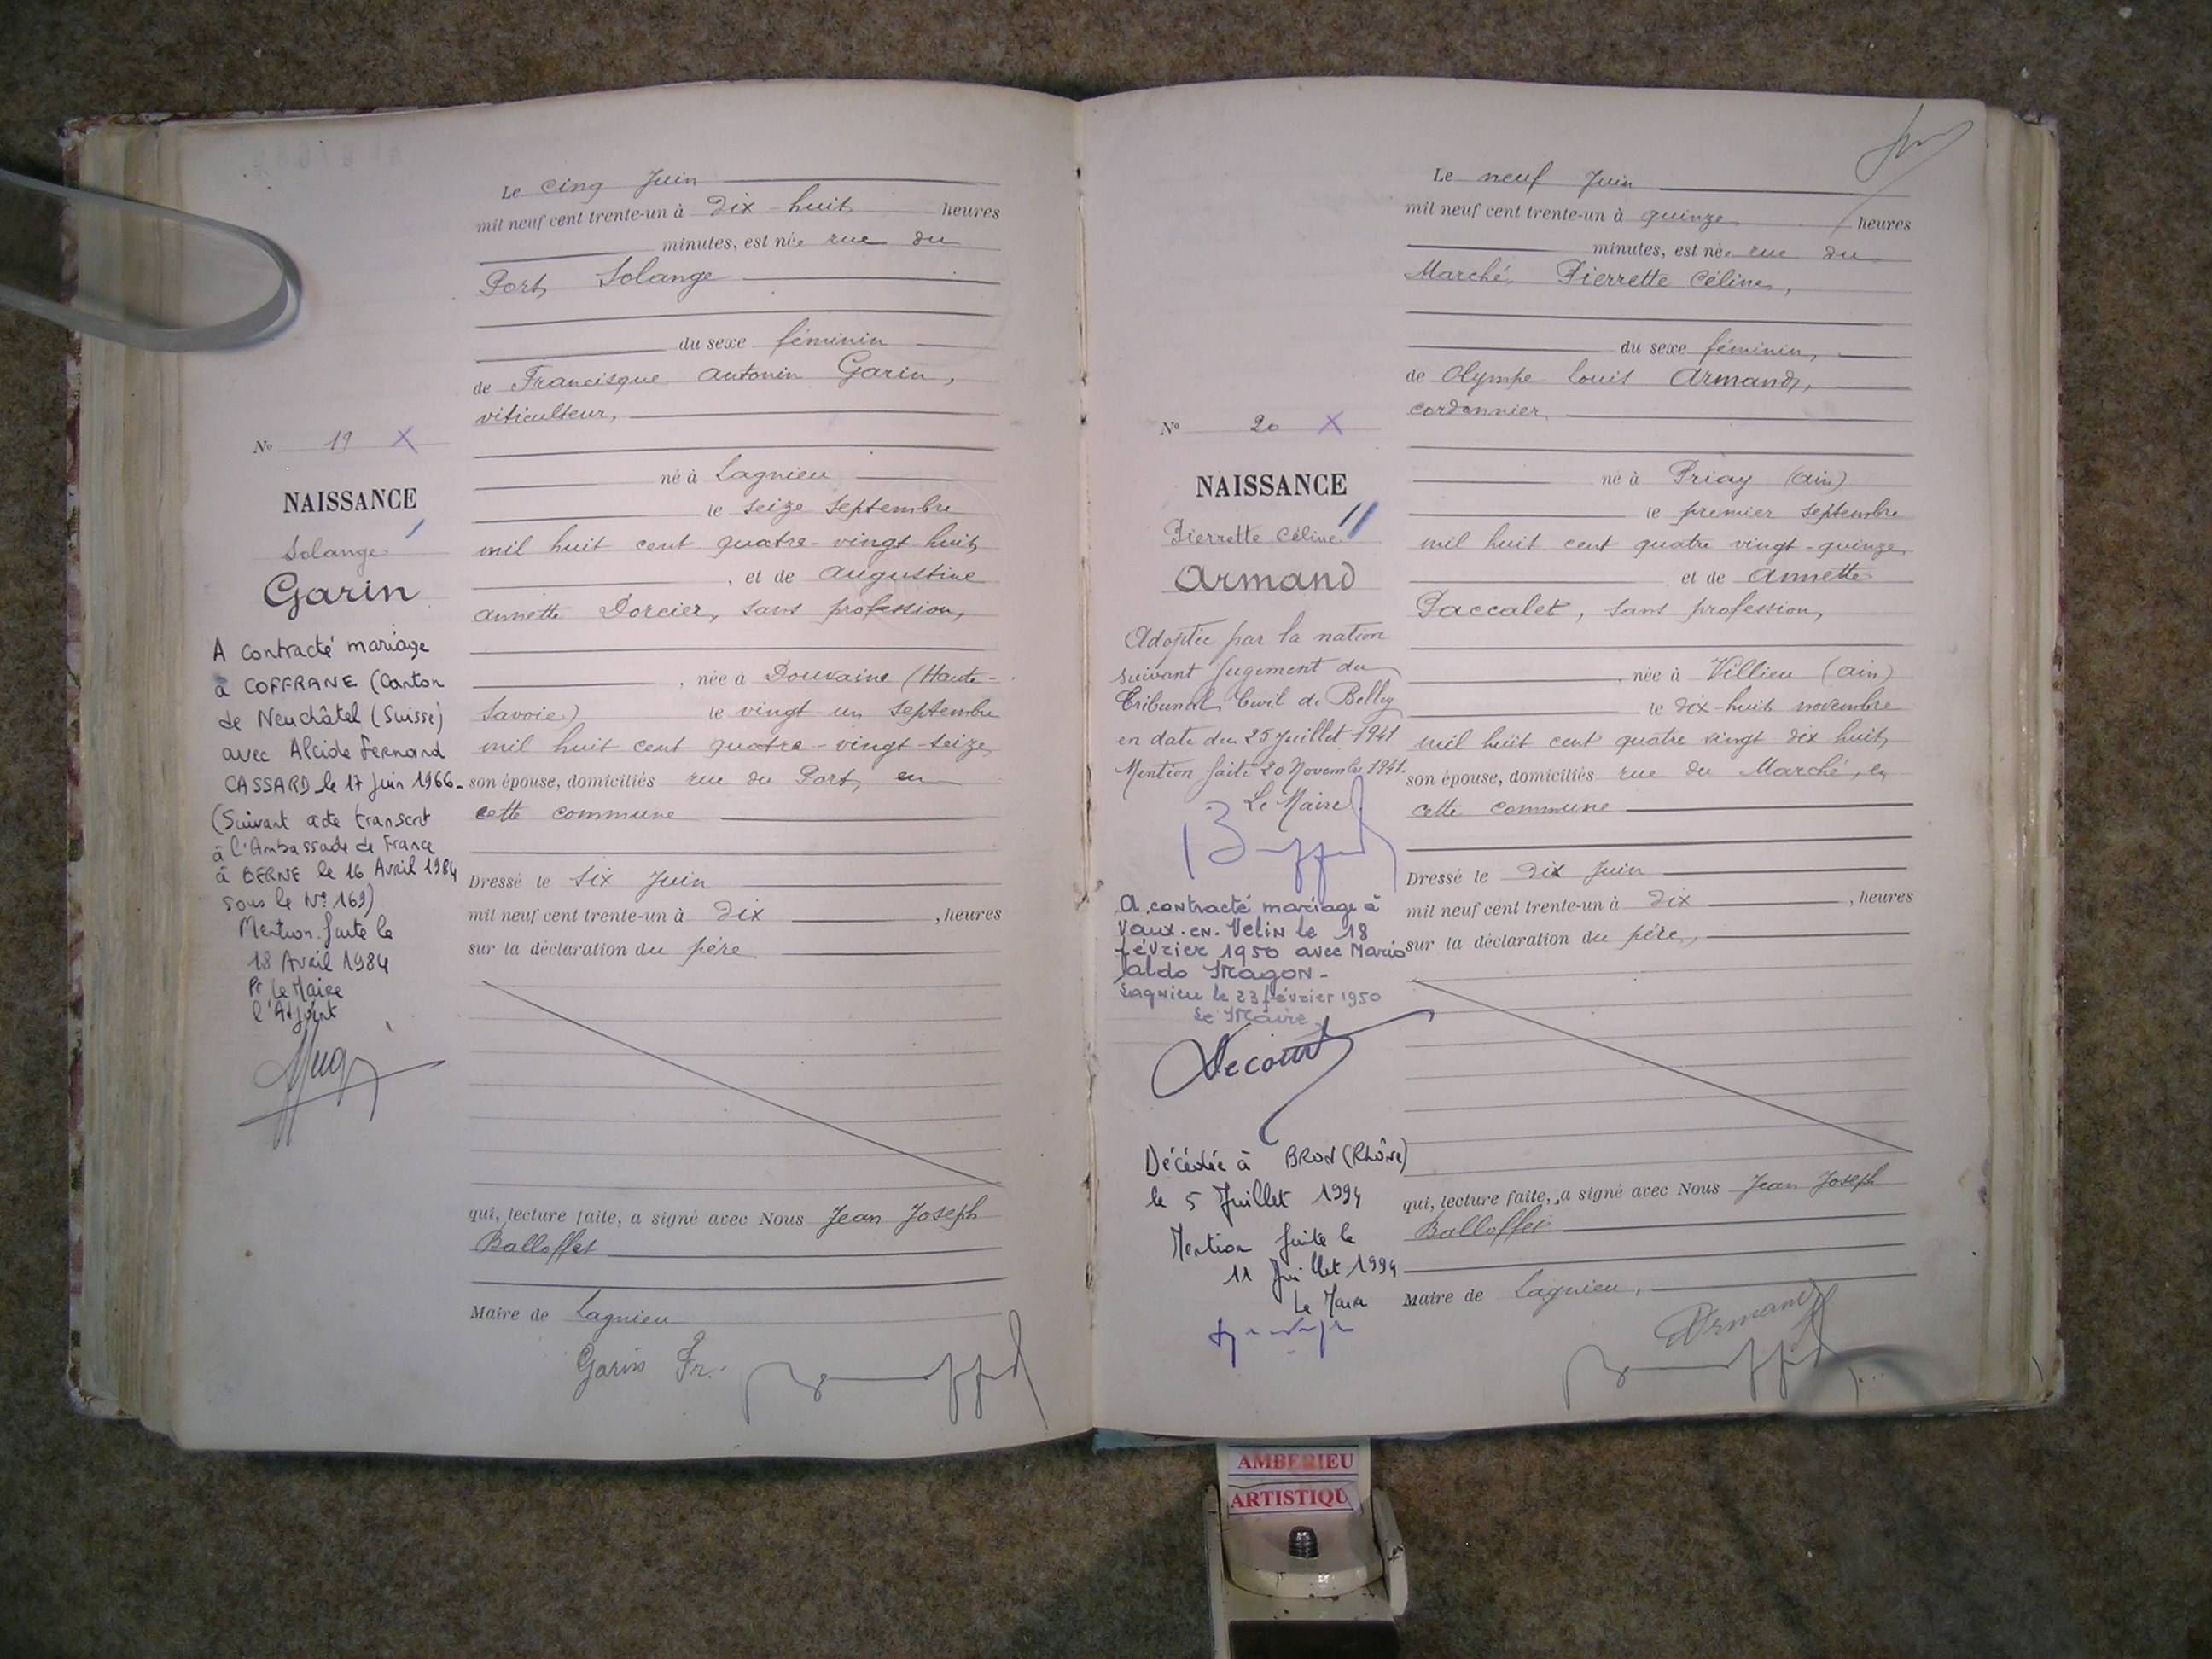 Le cinq Juin
mil neuf cent trente-un à Dix-huit heures
minutes, est née rue du
Port, Solange
du sexe féminin
de Francisque Antonin Garin,
viticulteur,
né à Lagnieu
le seize septembre
mil huit cent quatre-vingt-huit
, et de Augustine
Annette Dorcier, sans profession,
, née à Douvaine (Haute-
Savoie) le vingt-un septembre
mil huit cent quatre-vingt-seize,
son épouse, domiciliés rue du Port, en
cette commune
Dressé le six Juin
mil neuf cent trente-un à Dix , heures
sur la déclaration du père
qui, lecture faite, a signé avec Nous Jean Joseph
Balloffet
Maire de Lagnieu
Garin Fr.
No 19 X
NAISSANCE
Solange
Garin
A contracté mariage
à COFFRANE (Canton
de Neuchâtel (Suisse)
avec Alcide Fernand
CASSARD le 17 juin 1966-
(Suivant acte transcrit
à l'Ambassade de France
à BERNE le 16 Avril 1984
sous le N° 169)
Mention faite le
18 Avril 1984
Pr le Maire
l'Adjoint
Le neuf Juin
mil neuf cent trente-un à quinze heures
minutes, est née rue du
Marché, Pierrette Céline,
du sexe féminin,
de Olympe Louis Armand,
cordonnier,
né à Priay (Ain)
le premier septembre
mil huit cent quatre vingt-quinze,
et de Annette
Paccalet, sans profession,
, née à Villieu (Ain)
le dix-huit novembre
mil huit cent quatre vingt dix huit,
son épouse, domiciliés rue du Marché, en
cette commune
Dressé le dix Juin
mil neuf cent trente-un à Dix , heures
sur la déclaration du père,
qui, lecture faite, a signé avec Nous Jean Joseph
Balloffet
Maire de Lagnieu,
Armand
No 20 X
NAISSANCE
Pierrette Céline
Armand
Adoptée par la nation
suivant jugement du
Tribunal Civil de Belley
en date du 25 Juillet 1941
Mention faite 20 Novembre 1941.
Le Maire
A contracté mariage à
Vaux-en-Velin le 18
février 1950 avec Mario
Aldo Magon-
Lagnieu le 23 février 1950
Le Maire
Décédée à BRON (Rhône)
le 5 Juillet 1994
Mention faite le
11 Juillet 1994
Le Maire
AMBERIEU
ARTISTIQU